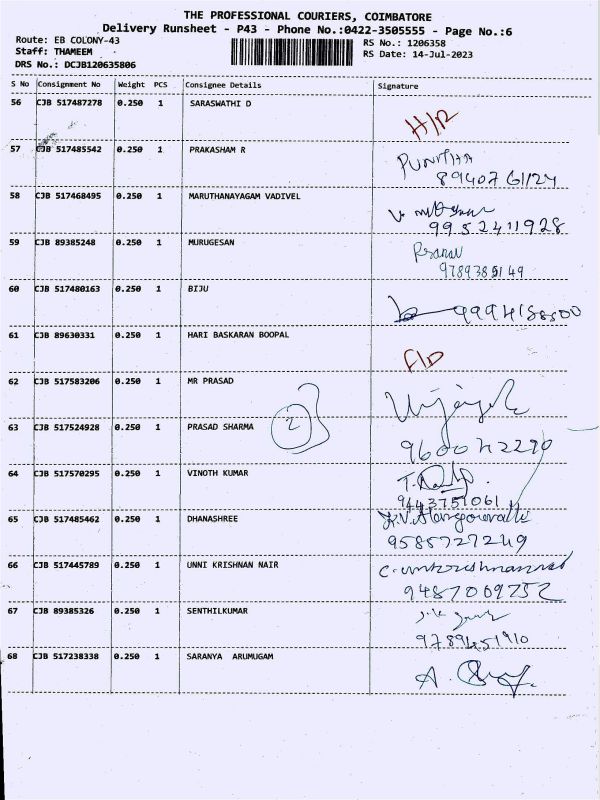 THE PROFESSIONAL COURIERS, COIMBATORE
Delivery Runsheet - P43 - Phone No.:0422-3505555 - Page No.:6
Route: EB COLONY-43
RS No.: 1206358
Staff: THAMEEM
RS Date: 14-Jul-2023
DRS No.: DCJB120635806
S No Consignment No Weight PCS Consignee Details Signature
56 CJB 517487278 0.250 1 SARASWATHI D
H/R
57 CJB 517485542 0.250 1 PRAKASHAM R
PUNITHA
8940761124
58 CJB 517468495 0.250 1 MARUTHANAYAGAM VADIVEL
9952411928
59 CJB 89385248 0.250 1 MURUGESAN
Pranav
9789385149
60 CJB 517480163 0.250 1 BIJU
61 CJB 89630331 0.250 1 HARI BASKARAN BOOPAL
62 CJB 517583206 0.250 1 MR PRASAD
2
63 CJB 517524928 0.250 1 PRASAD SHARMA
9600422290
64 CJB 517570295 0.250 1 VINOTH KUMAR
9443751061
65 CJB 517485462 0.250 1 DHANASHREE
9585727249
66 CJB 517445789 0.250 1 UNNI KRISHNAN NAIR
9487069752
67 CJB 89385326 0.250 1 SENTHILKUMAR
9789451910
68 CJB 517238338 0.250 1 SARANYA ARUMUGAM